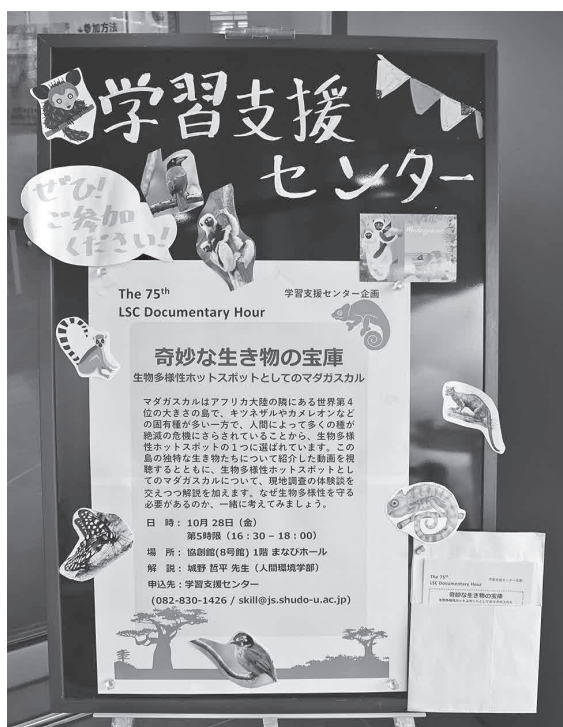 参加方法
学習支援
センター
ぜひ!
ご参加
ください!
Madagascar
The 75th
LSC Documentary Hour
学習支援センター企画
奇妙な生き物の宝庫
生物多様性ホットスポットとしてのマダガスカル
マダガスカルはアフリカ大陸の隣にある世界第4
位の大きさの島で、キツネザルやカメレオンなど
の固有種が多い一方で、人間によって多くの種が
絶滅の危機にさらされていることから、生物多様
性ホットスポットの1つに選ばれています。この
島の独特な生き物たちについて紹介した動画を視
聴するとともに、生物多様性ホットスポットとし
てのマダガスカルについて、現地調査の体験談を
交えつつ解説を加えます。なぜ生物多様性を守る
必要があるのか、一緒に考えてみましょう。
日 時: 10月 28日(金)
第5時限(16:30 – 18:00)
場 所: 協創館(8号館) 1階 まなびホール
解 説: 城野 哲平 先生(人間環境学部)
申込先: 学習支援センター
(082-830-1426 / skill@js.shudo-u.ac.jp)
The 75th
LSC Documentary Hour
学習支援センター企画
奇妙な生き物の宝庫
生物多様性ホットスポットとしてのマダガスカル